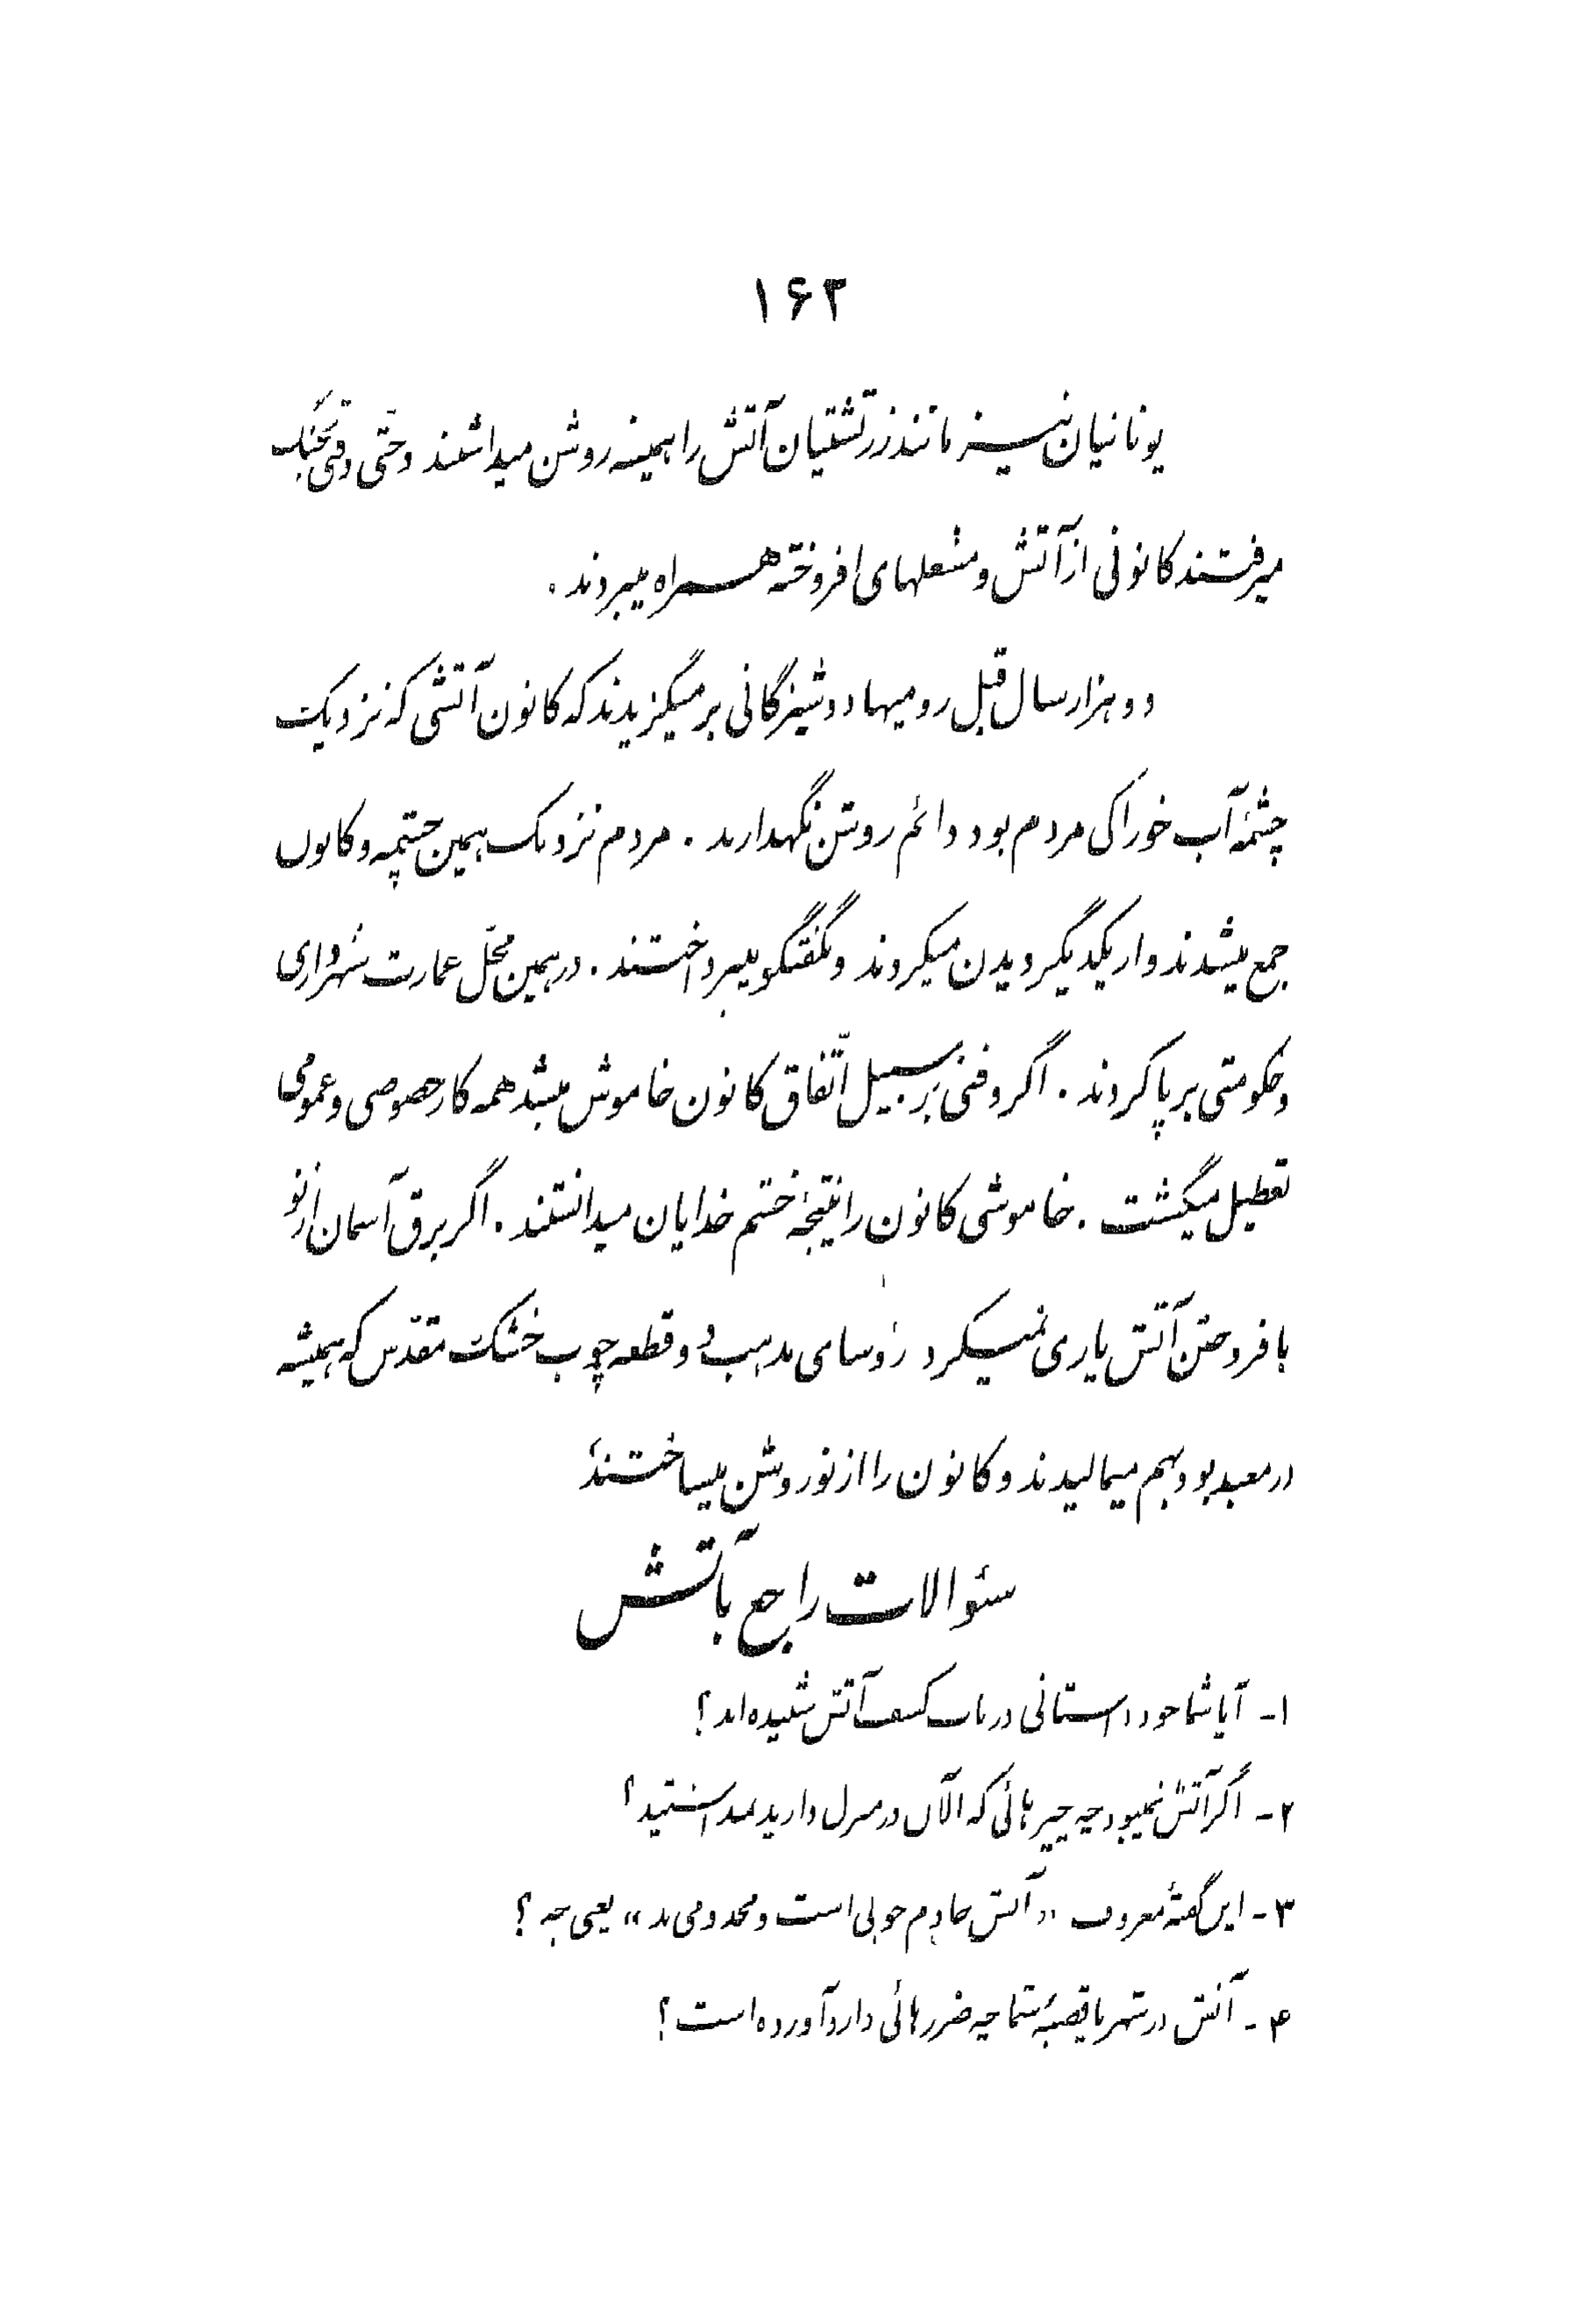 ۱۶۳
یونانیان نیز مانند زرتشتیان آتش را همیشه روشن میداشتند و حتّی وقتی بجنگ
میرفتند کانونی از آتش و مشعلهای افروخته همراه میبردند .
دو هزار سال قبل رومیها دوشیزگانی بر میگزیدند که کانون آتشی که نزدیک
چشمهٔ آب خوراکی مردم بود دائم روشن نگهدارند . مردم نزدیک همین چشمه و کانون
جمع میشدند و از یکدیگر دیدن میکردند و گفتگو میپرداختند . در همین محّل عمارت شهرداری
و حکومتی بر پا کردند . اگر وقتی بر سبیل اتّفاق کانون خاموش میشد همه کار خصوصی و عمومی
تعطیل میگشت . خاموشی کانون را نتیجهٔ خشم خدایان میدانستند . اگر برق آسمان از نو
بافروختن آتش یاری نمیکرد رؤسای مذهب دو قطعه چوب خشک مقدّس که همیشه
در معبد بود بهم میمالیدند و کانون را از نو روشن میساختند
سئوالات راجع بآتش
۱- آیا شما خود داستانی در باب کشف آتش شنیده اید ؟
۲- اگر آتش نمیبود چه چیز هائی که الآن در منزل دارید نمیداشتید ؟
۳- این گفتهٔ معروف «آتش خادم خوبی است و مخدومی بد» یعنی چه ؟
۴- آتش در شهر یا قصبهٔ شما چه ضرر هائی وارد آورده است ؟